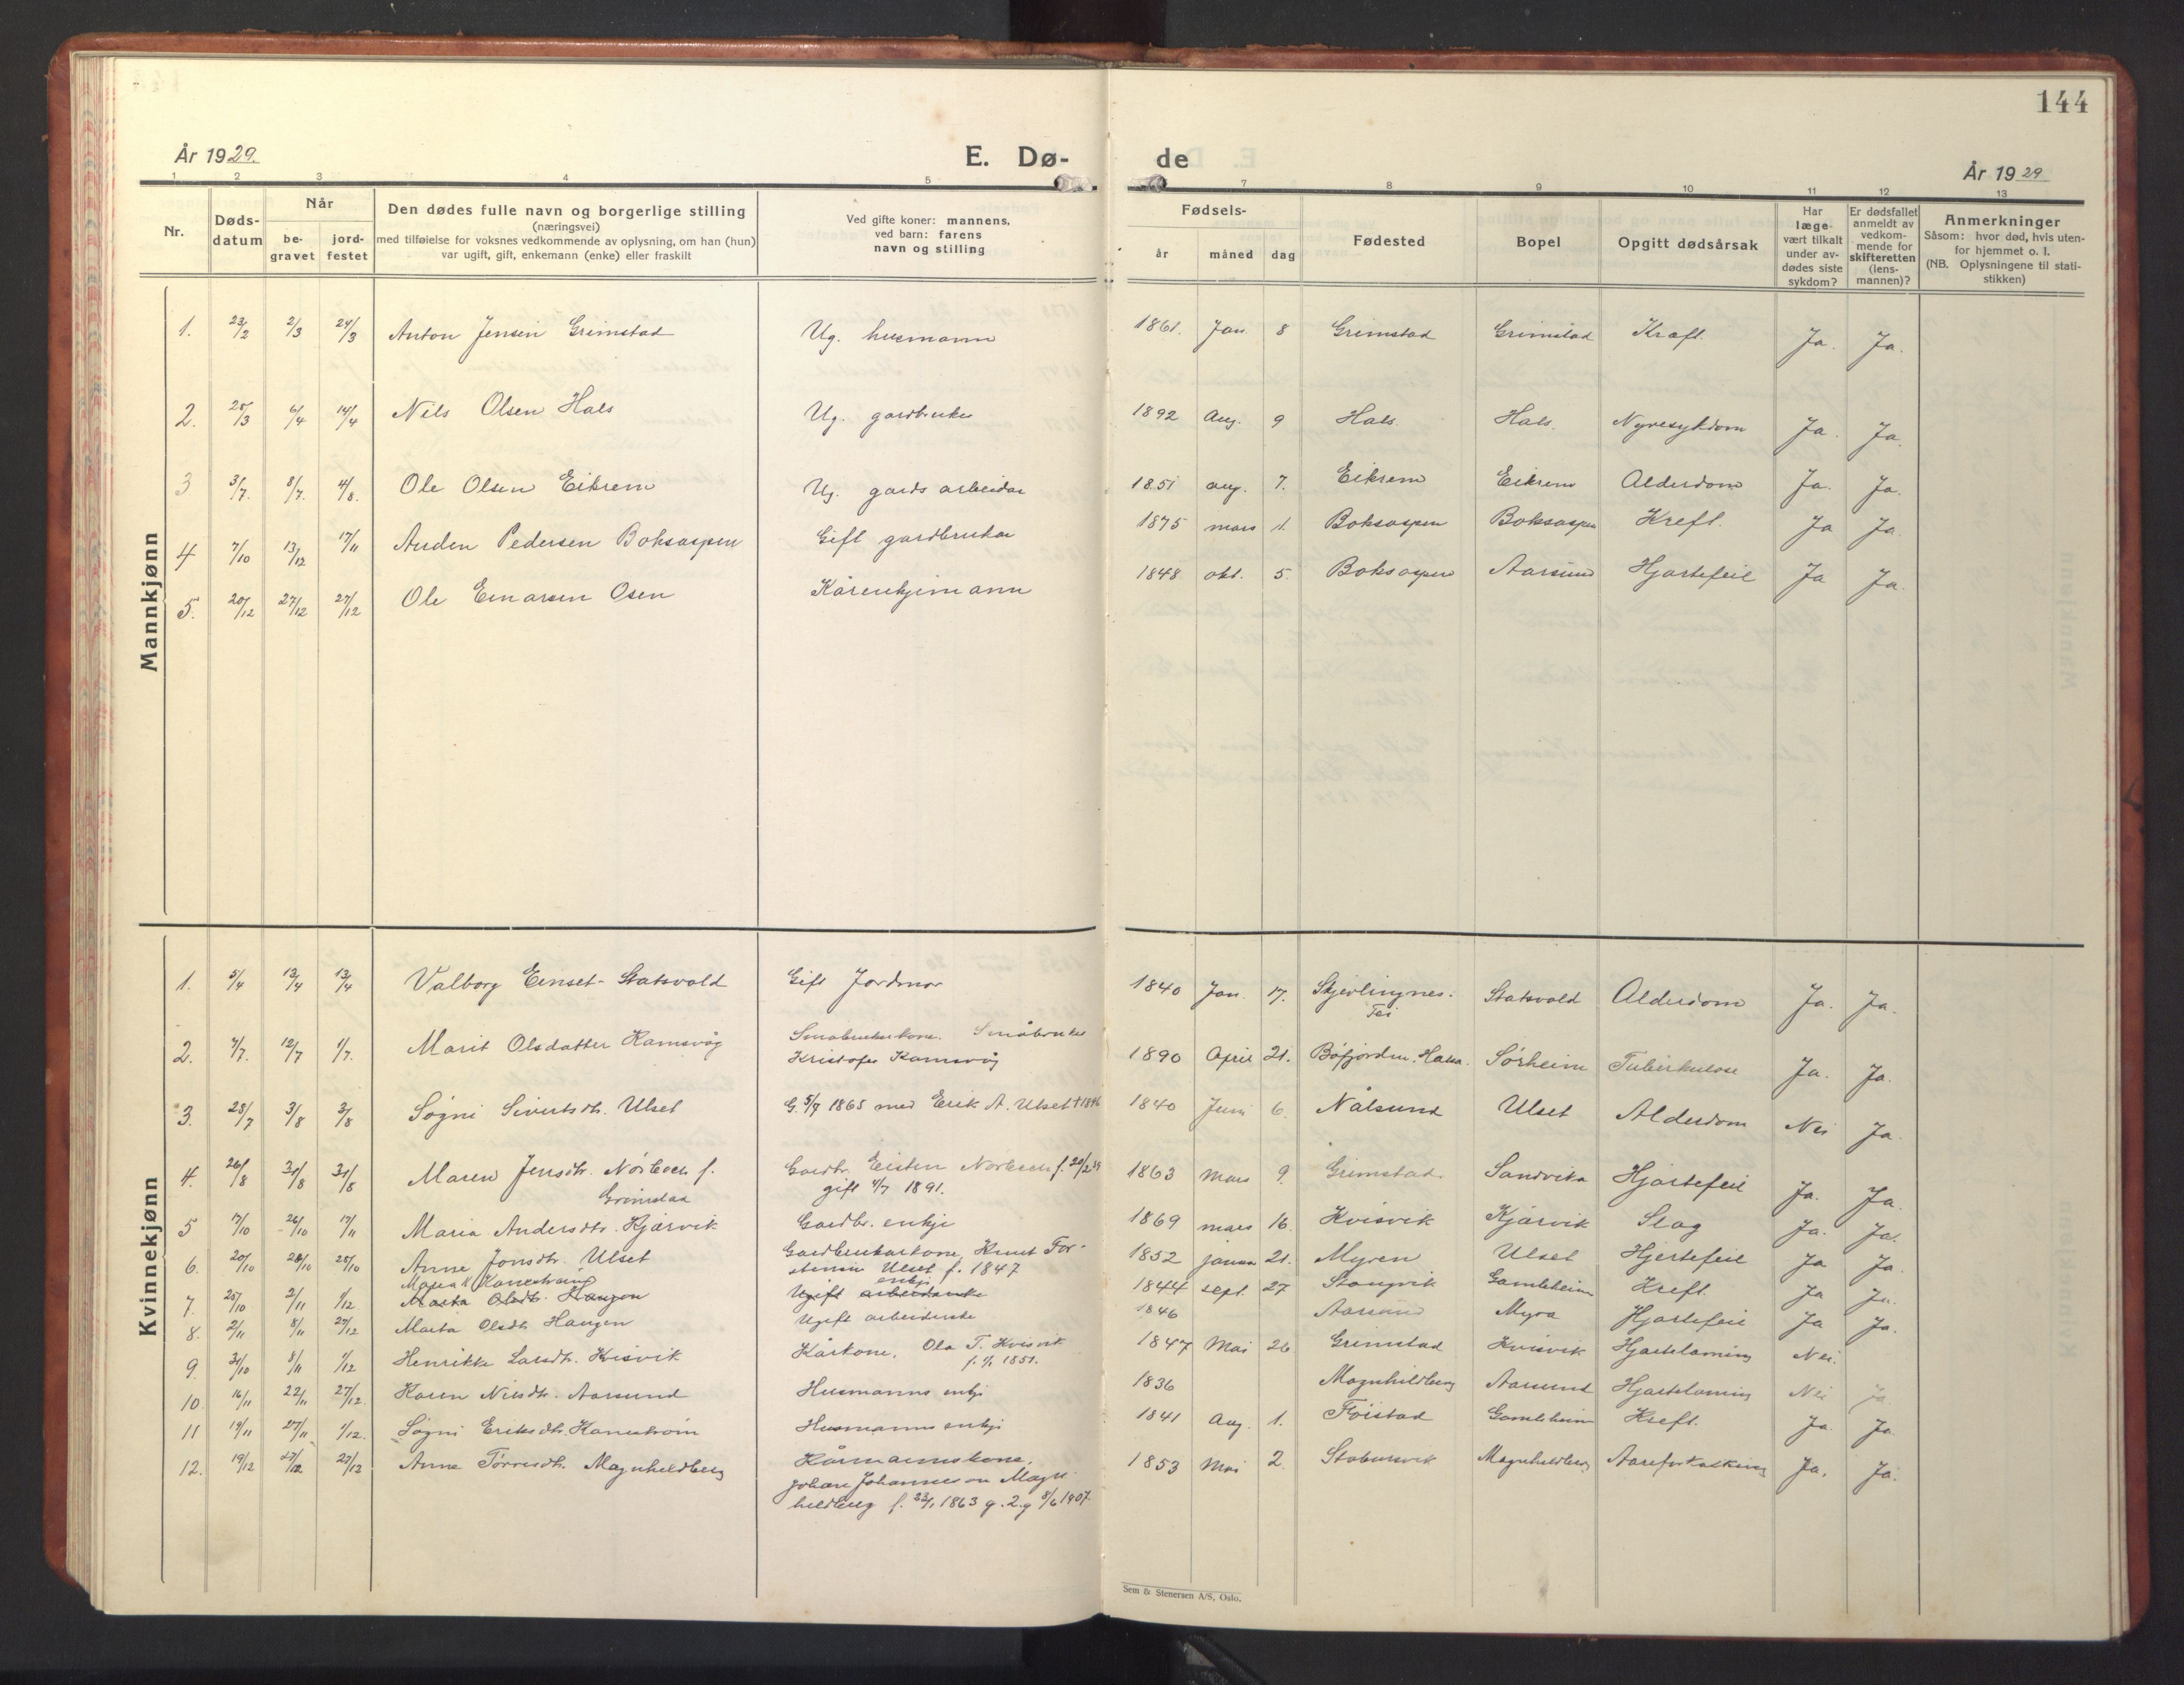 144
År 1929.
E. Dø-
de
År 1929
1 2 3 4 5 7 8 9 10 11 12 13
Nr.
Døds-
datum
Når
be-
gravet
jord-
festet
Den dødes fulle navn og borgerlige stilling
(næringsvei)
med tilføielse for voksnes vedkommende av oplysning, om han (hun)
var ugift, gift, enkemann (enke) eller fraskilt
Ved gifte koner: mannens,
ved barn: farens
navn og stilling
Fødsels-
år måned dag
Fødested
Bopel
Opgitt dødsårsak
Har
læge
vært tilkalt
under av-
dødes siste
sykdom?
Er dødsfallet
anmeldt av
vedkom-
mende for
skifteretten
(lens-
mannen)?
Anmerkninger
Såsom: hvor død, hvis uten-
for hjemmet o. l.
(NB. Oplysningene til stati-
stikken)
Mannkjønn
1. 23/2 2/3 24/3 Anton Jensen Grimstad Ug. husmann 1861. Jan. 8 Grimstad Grimstad Kræft. Ja. Ja.
2. 25/3 6/4 14/4 Nils Olsen Hals Ug. gardbruker 1892 Aug. 9 Hals. Hals. Nyresykdom Ja. Ja.
3 3/7. 8/7. 4/8. Ole Olsen Eikrem Ug. gards arbeidar 1851 aug. 7. Eikrem Eikrem Alderdom Ja. Ja.
4 7/10 13/12 17/11 Auden Pedersen Boksaspen Gift gardbrukar 1875 mars 1. Boksaspen Boksaspen Kreft. Ja Ja.
5. 20/12 27/12 27/12 Ole Einarsen Osen Kårenkjemann 1848 okt. 5. Boksaspen Aarsund Hjartefeil Ja Ja.
Kvinnekjønn
1. 5/4 13/4 13/4 Valborg Einset-Statsvold Gift Jordmor 1840 Jan. 17. Skjevlingnes. Statsvold Alderdom Ja. Ja.
2. 7/7. 12/7 1/7. Marit Olsdatter Kamsvåg Småbrukerkone. Småbruker
Kristofer Kamsvåg 1890 April 21. Bøfjorden. Halsa. Sørheim Tuberkulose Ja. Ja.
3. 28/7 3/8 3/8 Søgni Sivertsdtr. Ulset G. 5/7 1865 med Erik A. Ulset †1896 1840 Juni 6. Nålsund Ulset Alderdom Nei Ja.
4. 26/8 31/8 31/8 Maren Jensdtr. Nørbech f.
Grimstad
Gardbr. Eisten Nørbech f. 20/2 39
gift 4/7 1891. 1863 Mars 9. Grimstad. Sandvika Hjartefeil Ja. Ja.
5 17/10 26/10 17/11 Maria Andersdtr. Kjårvik Gardbr. enkje 1869 mars 16. Kvisvik Kjårvik Slag Ja. Ja.
6. 20/10 26/10 25/10 Anne Jonsdtr. Ulset Gardbrukarkone, Knut Tor-
stensen Ulset f. 1847 1852 januar 21. Myren Ulset Hjertefeil Ja Ja.
7. 25/10 2/11 1/12 Maria K Kanestrøm
Marta Olsdtr. Haugen
enkje
Ugift arbeidarke 1844 sept. 27 Stangvik Gamleheim Kreft. Ja Ja.
8. 2/11 8/11 27/12 Marta Olsdtr Haugen Ugift arbeiderske 1846 Aarsund Myra Hjartefeil Ja Ja.
9. 31/10 8/11 1/12 Henrikke Larsdtr. Kvisvik Kårkone, Ola T. Kvisvik
f. 1/1 1851. 1847 Mai 26 Grimstad Kvisvik Hjartelaming Nei.
10. 16/11 22/11 27/12. Karen Nilsdtr. Aarsund Husmanns enkje 1836 Magnhildberg Aarsund Hjartelaming Nei Ja
11 19/11 27/11 1/12. Søgni Eriksdtr. Kanestrøm Husmanns enkje 1841 Aug. 1. Flöistad Gamleheim Kreft. Ja. Ja.
12. 19/12 27/12 27/12 Anne Tørresdtr. Magnhildberg Kårmannskone,
Johan Johannesson Magn-
hildberg f. 23/1 1863 g. 2. g 8/6 1907. 1853 Mai 2. Stabursvik Magnhildberg Aareforkalkning Ja. Ja.
Sem & Stenersen A/S, Oslo.